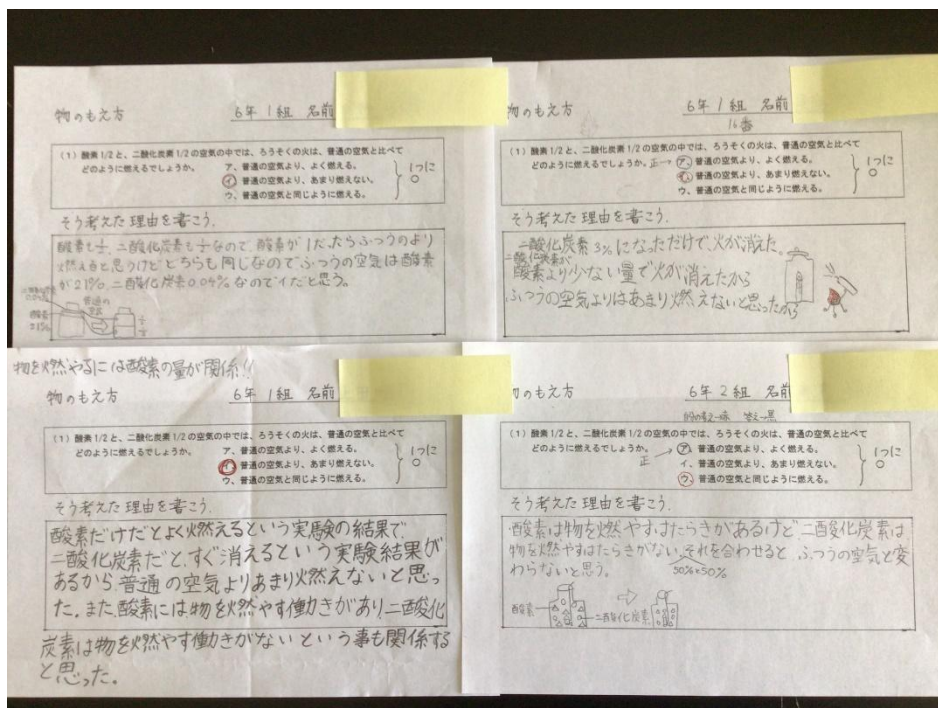 物のもえ方
6年 1組 名前
(1)酸素1/2と、二酸化炭素1/2の空気の中では、ろうそくの火は、普通の空気と比べて
どのように燃えるでしょうか。
ア、普通の空気より、よく燃える。
イ、普通の空気より、あまり燃えない。
ウ、普通の空気と同じように燃える。
1つに
○
そう考えた理由を書こう.
酸素も1/2、二酸化炭素も1/2なので、酸素が1だったらふつうのより
燃えると思うけどどちらも同じなのでふつうの空気は酸素
が21%、二酸化炭素0.04%なのでイだと思う。
普通の
空気
酸素
21%
物のもえ方
6年 1組 名前
16番
(1)酸素1/2と、二酸化炭素1/2の空気の中では、ろうそくの火は、普通の空気と比べて
どのように燃えるでしょうか。
正→ ア、普通の空気より、よく燃える。
イ、普通の空気より、あまり燃えない。
ウ、普通の空気と同じように燃える。
1つに
○
そう考えた理由を書こう.
二酸化炭素3%になっただけで、火が消えた。
二酸化炭素が
酸素より少ない量で火が消えたから
ふつうの空気よりはあまり燃えないと思ったから
物を燃やするには酸素の量が関係!!
物のもえ方
6年 1組 名前
(1)酸素1/2と、二酸化炭素1/2の空気の中では、ろうそくの火は、普通の空気と比べて
どのように燃えるでしょうか。
ア、普通の空気より、よく燃える。
イ、普通の空気より、あまり燃えない。
ウ、普通の空気と同じように燃える。
1つに
○
そう考えた理由を書こう.
酸素だけだとよく燃えるという実験の結果で、
二酸化炭素だと、すぐ消えるという実験結果が
あるから、普通の空気よりあまり燃えないと思っ
た。また、酸素には物を燃やす働きがあり、二酸化
炭素は物を燃やす働きがないという事も関係する
と思った。
のもえ方
6年 2組 名前
自分の考え→赤 答え→黒
(1)酸素1/2と、二酸化炭素1/2の空気の中では、ろうそくの火は、普通の空気と比べて
どのように燃えるでしょうか。
正→ ア、普通の空気より、よく燃える。
イ、普通の空気より、あまり燃えない。
ウ、普通の空気と同じように燃える。
1つに
○
そう考えた理由を書こう.
酸素は物を燃やすはたらきがあるけど、二酸化炭素は
物を燃やすはたらきがない。それを合わせると、ふつうの空気と変
わらないと思う。
50%と50%
酸素
二酸化炭素